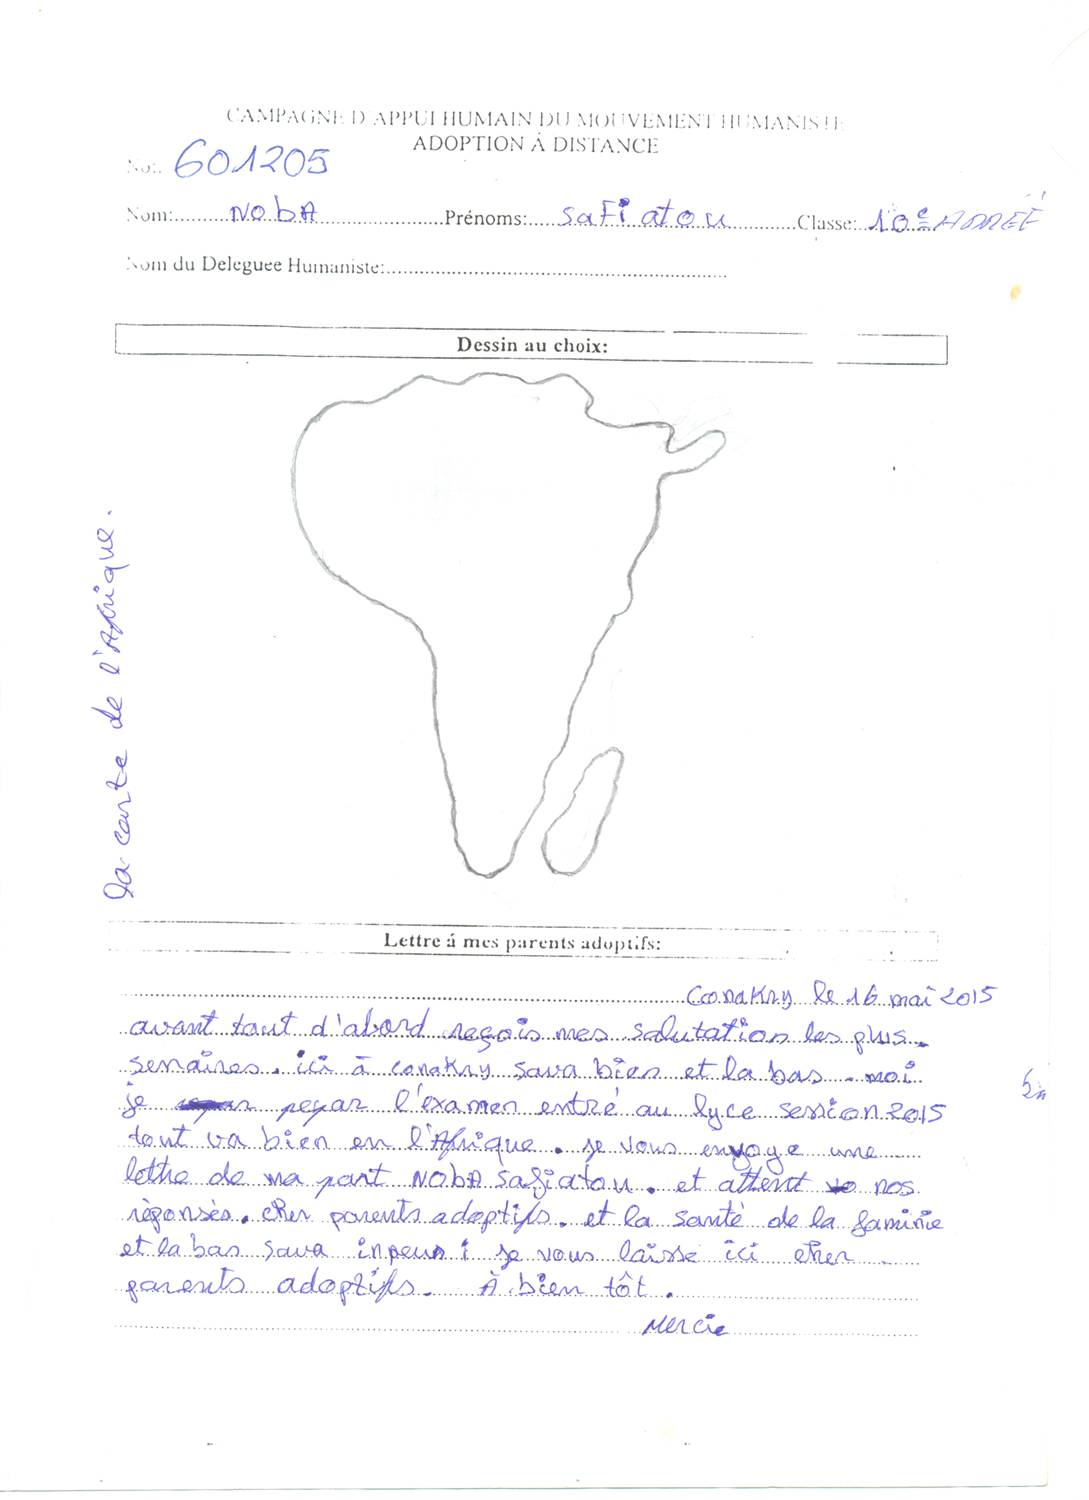 CAMPAGNE D'APPUI HUMAIN DU MOUVEMENT HUMANISTE
ADOPTION Á DISTANCE
No:. 601205
Nom:..........NobA......................Prénoms:.....SaFiatou.............Classe: 10e ANNEÉ
Nom du Deleguee Humaniste:.............................................................
Dessin au choix:
la carte de l'Afrique.
Lettre á mes parents adoptifs:
Conakry le 16 mai 2015
avant tout d'abord reçois mes salutation les plus
senaires. ici à conakry sava bien et la bas. moi
je peyar l'examen entré au lyce session 2015
tout va bien en l'Afrique. je vous envoye une
lethe de ma part NobA Safiatou. et attent nos
réponsès. cher parents adoptifs. et la santé de la faminie
et la bas sava inpeu i je vous laisse ici cher
parents adoptifs. À bien tôt.
Mercie